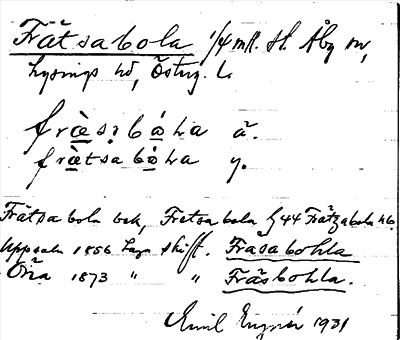 Frätsabola 1/4 mtl. st. Åby sn,
Lysings hd, Östug. L.
fræs₂bɷ́ла ä.
frætsabɷ́la y.
Frätsabola bek, Fretsabola § 44 Frätzabola hb.
Uppsala 1856 Laga skift. Frasabohla
Öna 1873 " " Fräsbohla.
Emil 1931